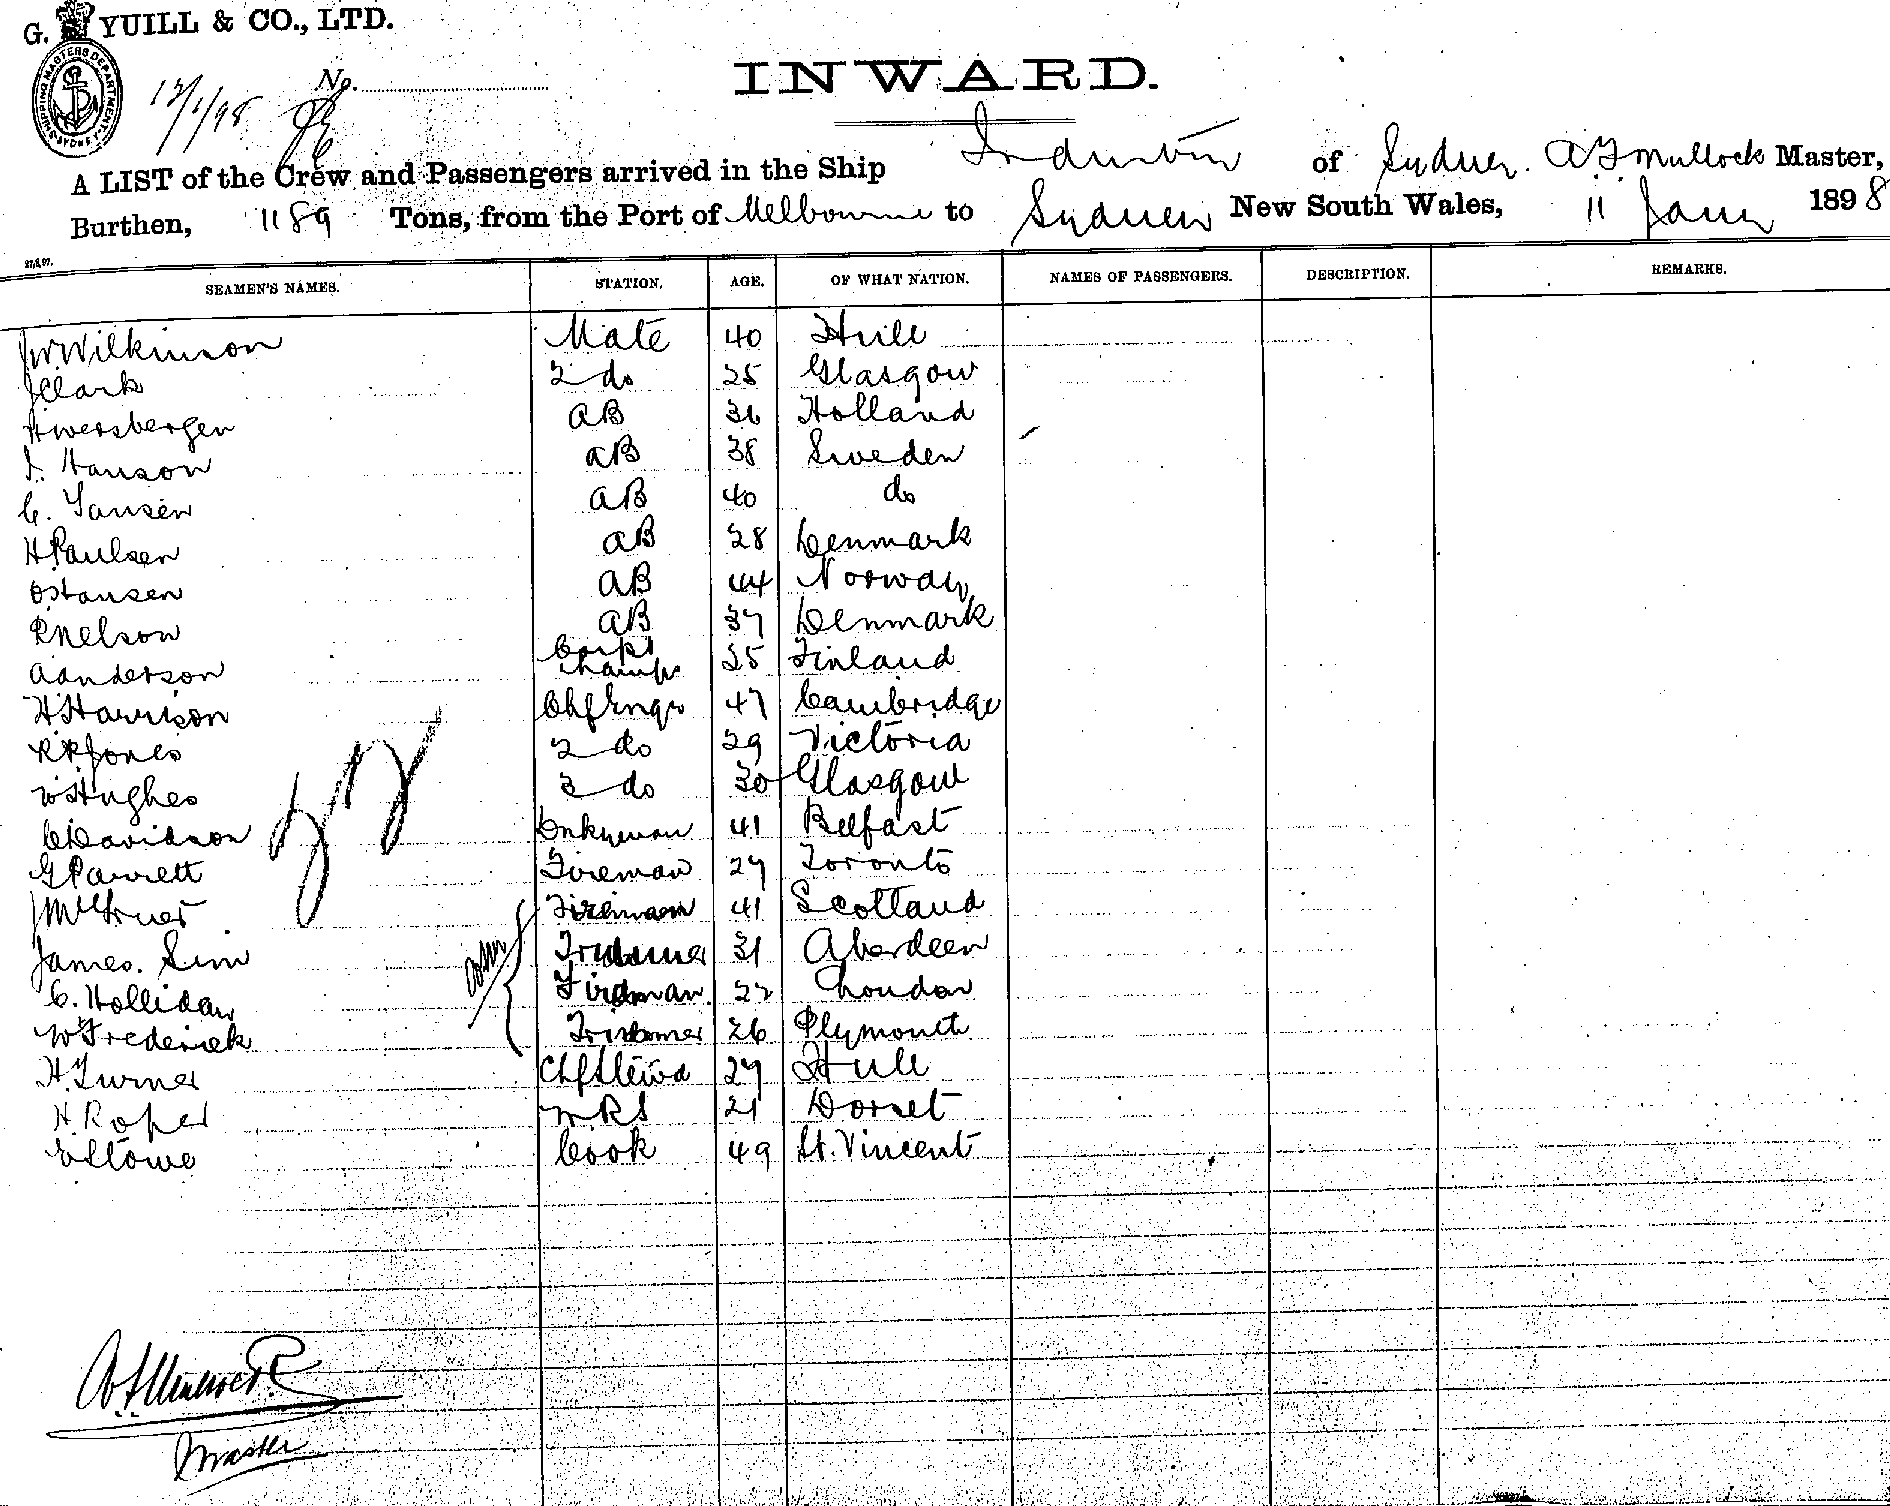 G. YUILL & CO., LTD.
SHIPPING MASTERS DEPARTMENT SYDNEY
12/1/98 No.
INWARD.
A LIST of the Crew and Passengers arrived in the Ship of Sydney. A F Mullock Master,
Burthen, 1189 Tons, from the Port of Melbourne to Sydney New South Wales, 11 Jany 1898
SEAMEN'S NAMES. STATION. AGE. OF WHAT NATION. NAMES OF PASSENGERS. DESCRIPTION. REMARKS.
JW Wilkinson Mate 40 Hull
J Clark 2 do 25 Glasgow
H Wersbergen AB 36 Holland
Hanson AB 38 Sweden
C. Jansen AB 40 do
H Paulsen AB 28 Denmark
O Hansen AB 44 Norway
P Nelson AB 37 Denmark
A Anderson 25 Finland
H Harrison Chf Engr 47 Cambridge
R R Jones 2 do 29 Victoria
W Hughes 3 do 30 Glasgow
C Davidson Dnkyman 41 Belfast
G Parrett Fireman 27 Toronto
Fireman 41 Scotland
James. Sim Trimmer 31 Aberdeen
C. Holliday Fireman 22 London
W Frederick Trimmer 26 Plymouth
H. Turner Chf Stewd 27 Hull
H. Roper M.R.S 21 Dorset
E Stowe Cook 49 St. Vincent
A F Mullock
Master